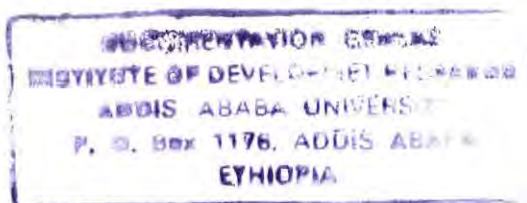 DOCUMENTATION CENTRE
INSTITUTE OF DEVELOPMENT RESEARCH
ADDIS ABABA UNIVERSITY
P. O. Box 1176, ADDIS ABABA
ETHIOPIA